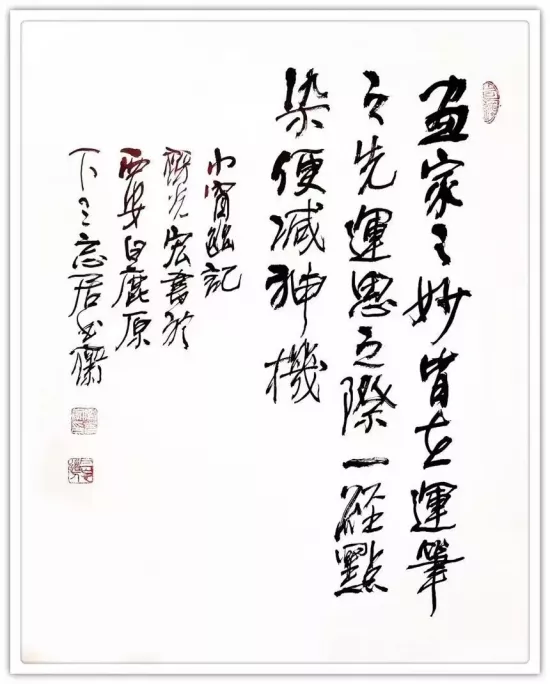 畫家之妙皆在運筆
之先運思之際一經點
染便減神機
小窗幽記
光宏書於
西安白鹿原
下三忘居齋